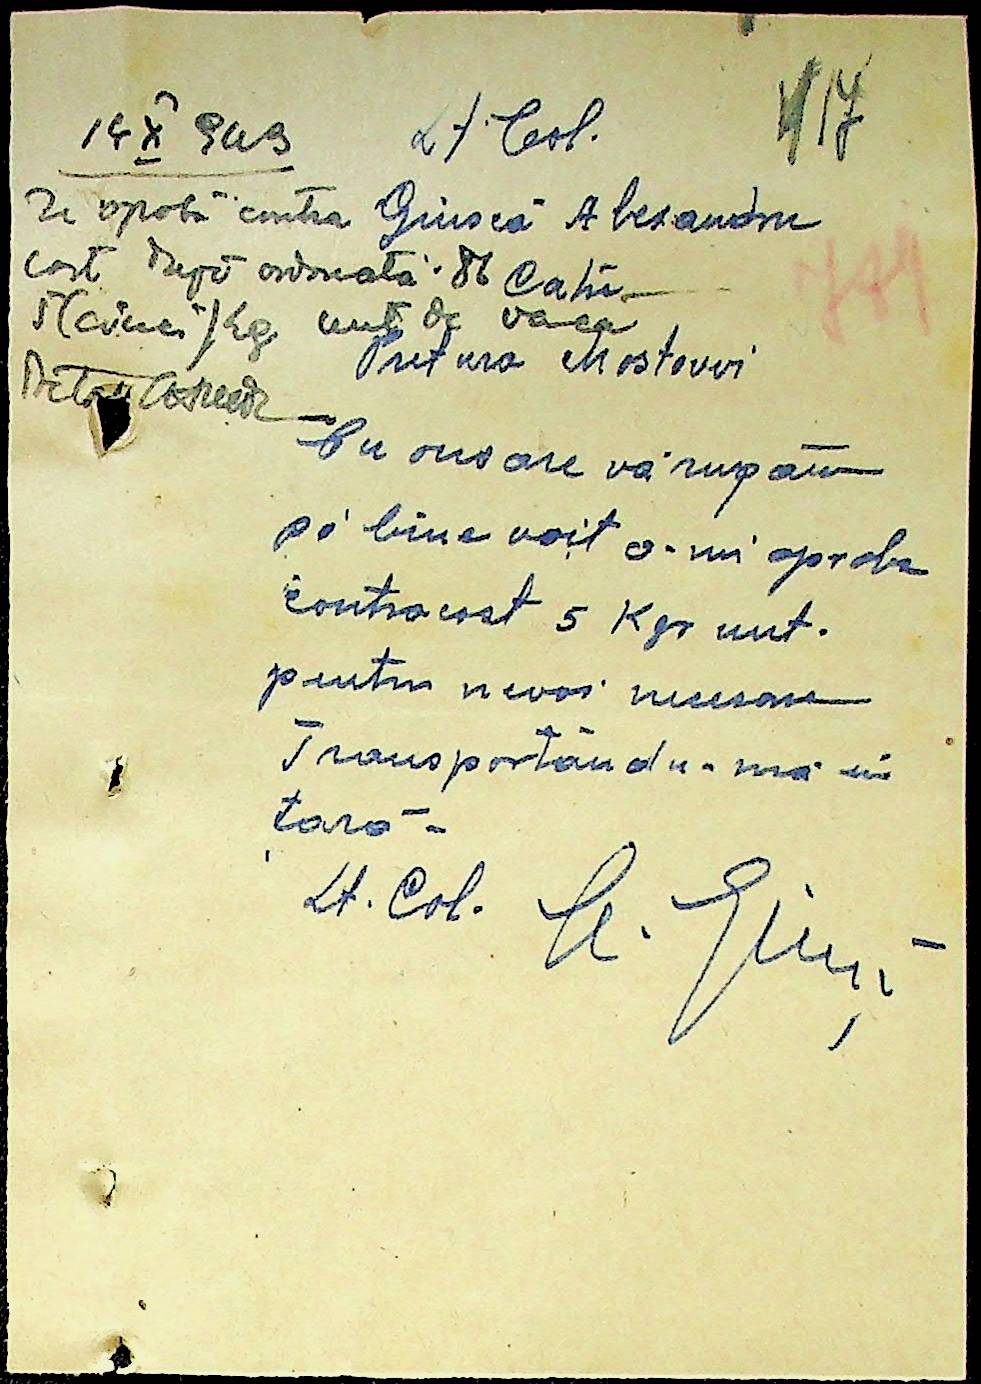 417
14 X 943
Se aprobă contra
cost după ordonată 86
5 (cinci) Kg unt de vaca
Lt. Col.
Giuscă Alexandru
Catre
Pretura Mostovoi
781
Cu onoare vă rugăm
să bine voiț a-mi aproba
contracost 5 Kgr unt.
pentru nevoi necesare
Transportându-mă în
țară-
Lt. Col. A. Giușcă